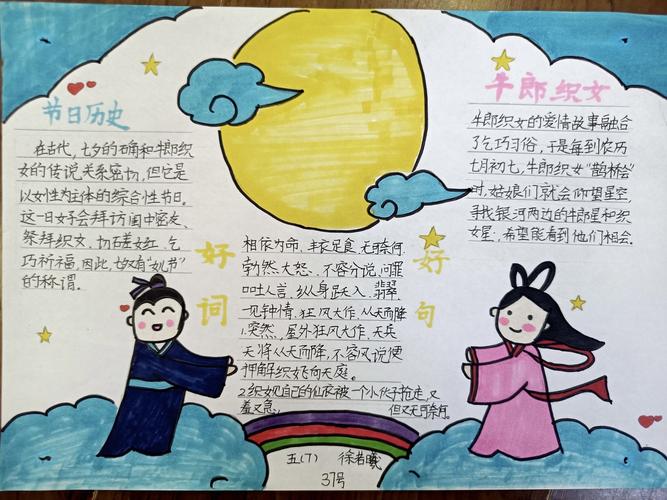 节日历史
在古代，七夕的确和牛郎织
女的传说关系密切，但它是
以女性为主体的综合性节日。
这一日女子会拜访闺中密友、
祭拜织女、切磋女红、乞
巧祈福，因此，七夕又有“女儿节”
的称谓。
好词
相依为命、丰衣足食、无可奈何、
勃然大怒、不容分说、问罪
口吐人言、纵身跃入、翡翠、
一见钟情、狂风大作、从天而降
好句
1.突然，屋外狂风大作，天兵
天将从天而降，不容分说便
押解织女飞向天庭。
2.织女见自己的仙衣被一个小伙子抢走，又
羞又急，但又无可奈何。
牛郎织女
牛郎织女的爱情故事融合
了乞巧习俗，于是每到农历
七月初七，牛郎织女“鹊桥会”
时，姑娘们就会仰望星空，
寻找银河两边的牛郎星和织
女星，希望能看到他们相会。
五(7) 徐若曦
37号